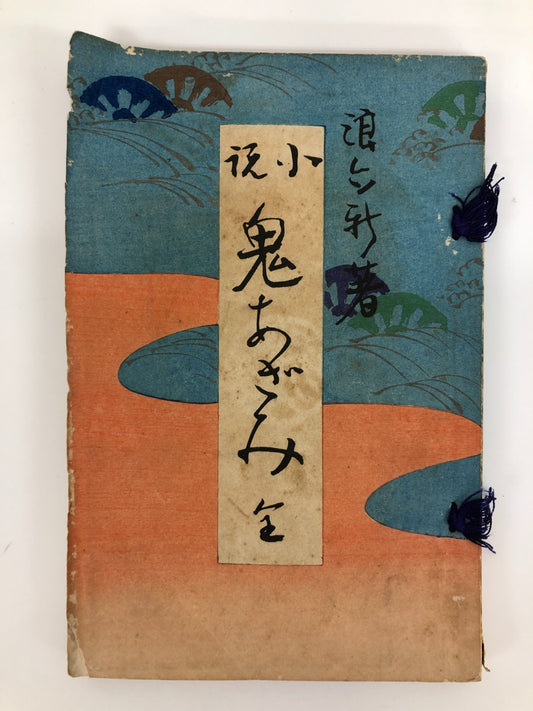 浪六新著
小説
鬼あざみ 全